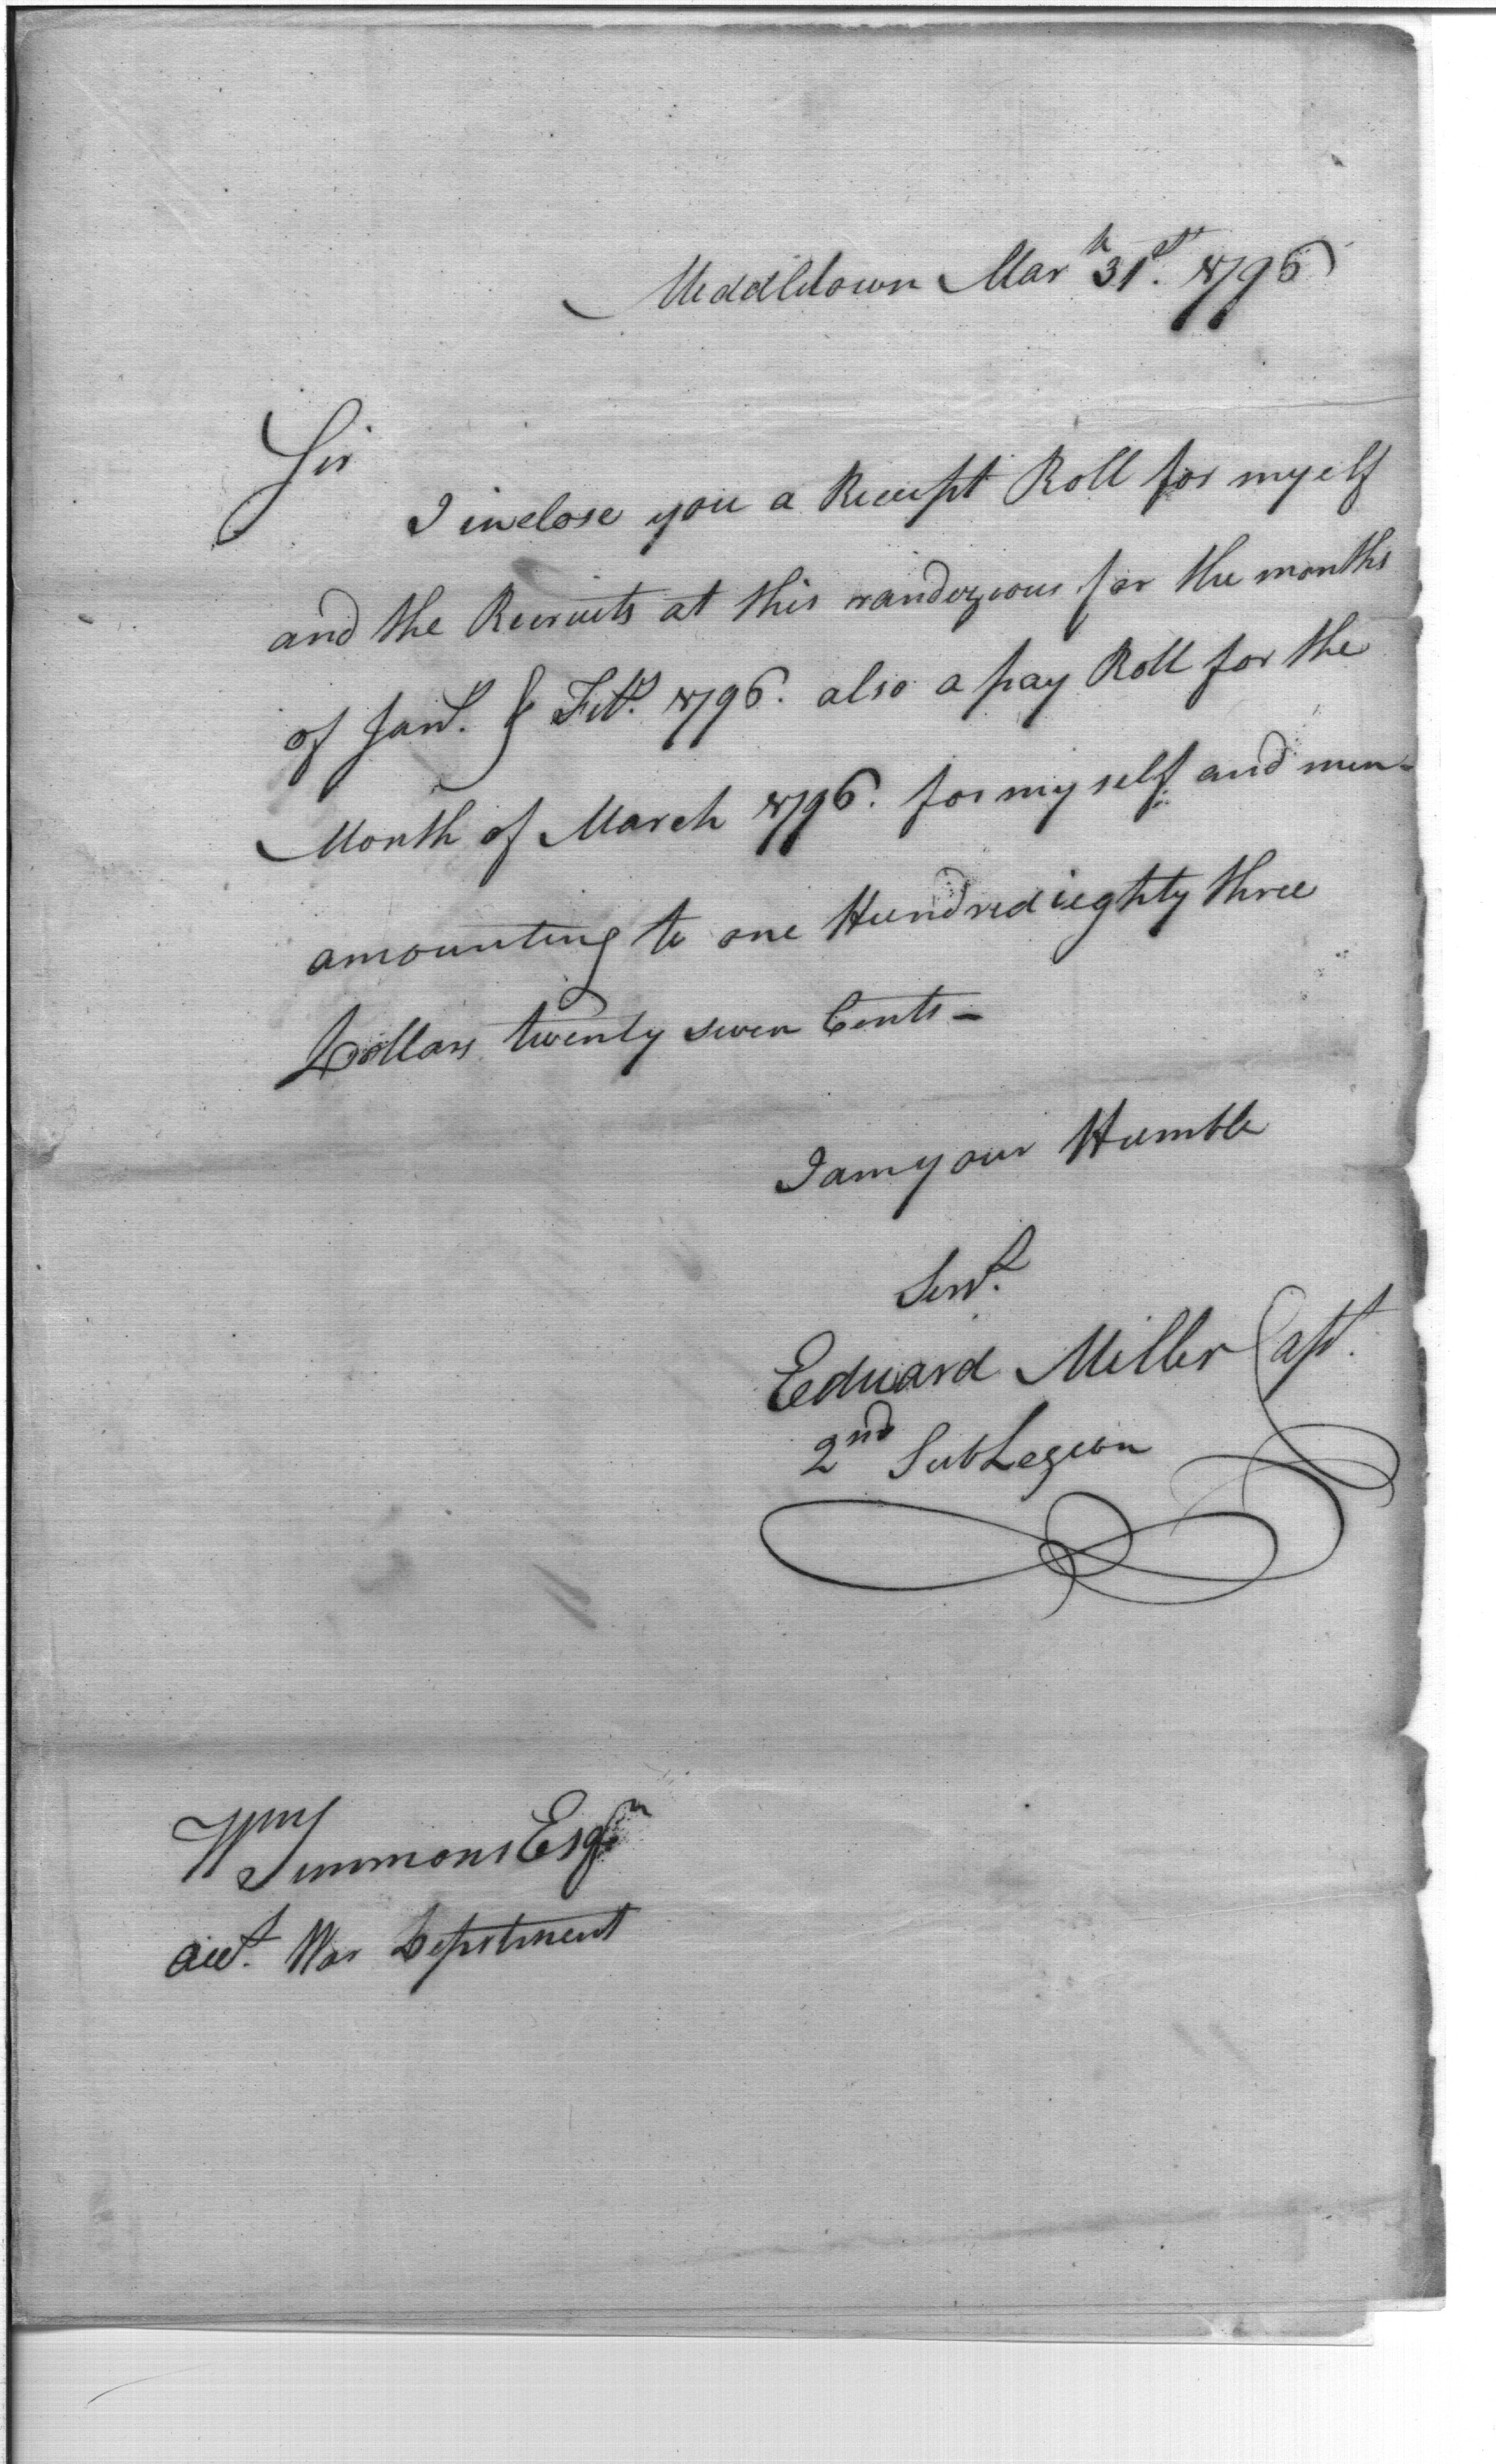 Middletown Marh 31st. 1796
Sir
I inclose you a Receipt Roll for myself
and the Recruits at this randezvous for the months
of Jany. & Feby. 1796. also a pay Roll for the
Month of March 1796. for my self and men-
amounting to one Hundred ieghty three
Dollars twenty seven Cents -
I am your Humble
Servt.
Edward Miller Capt.
2nd Sub Legion
Wm Simmons Esqr
Acct. War Depertment